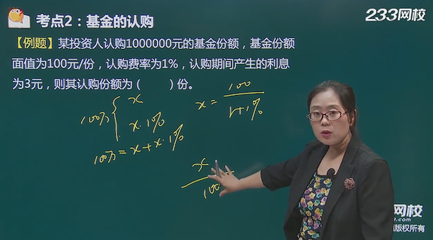 考点2：基金的认购
233网校
【例题】某投资人认购1000000元的基金份额，基金份额
面值为100元/份，认购费率为1%，认购期间产生的利息
为3元，则其认购份额为（　　）份。
100万 { x
x·1%
100万 = x + x·1%
x = 100 / 1+1%
x / 100
网校
版权所有